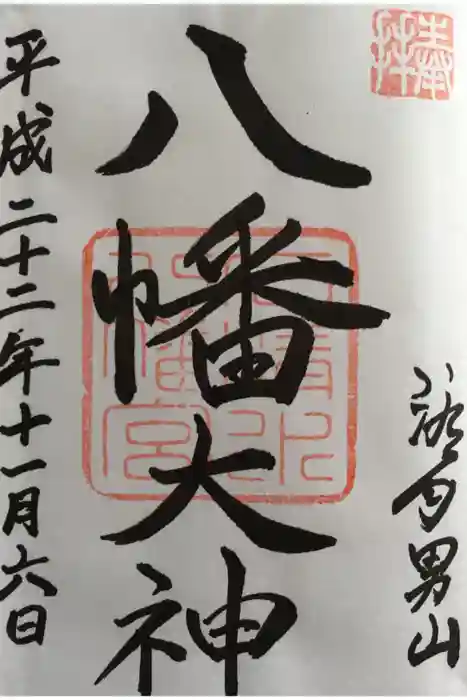 奉拝
洛南男山
八幡大神
石清水八幡宮
平成二十二年十一月六日